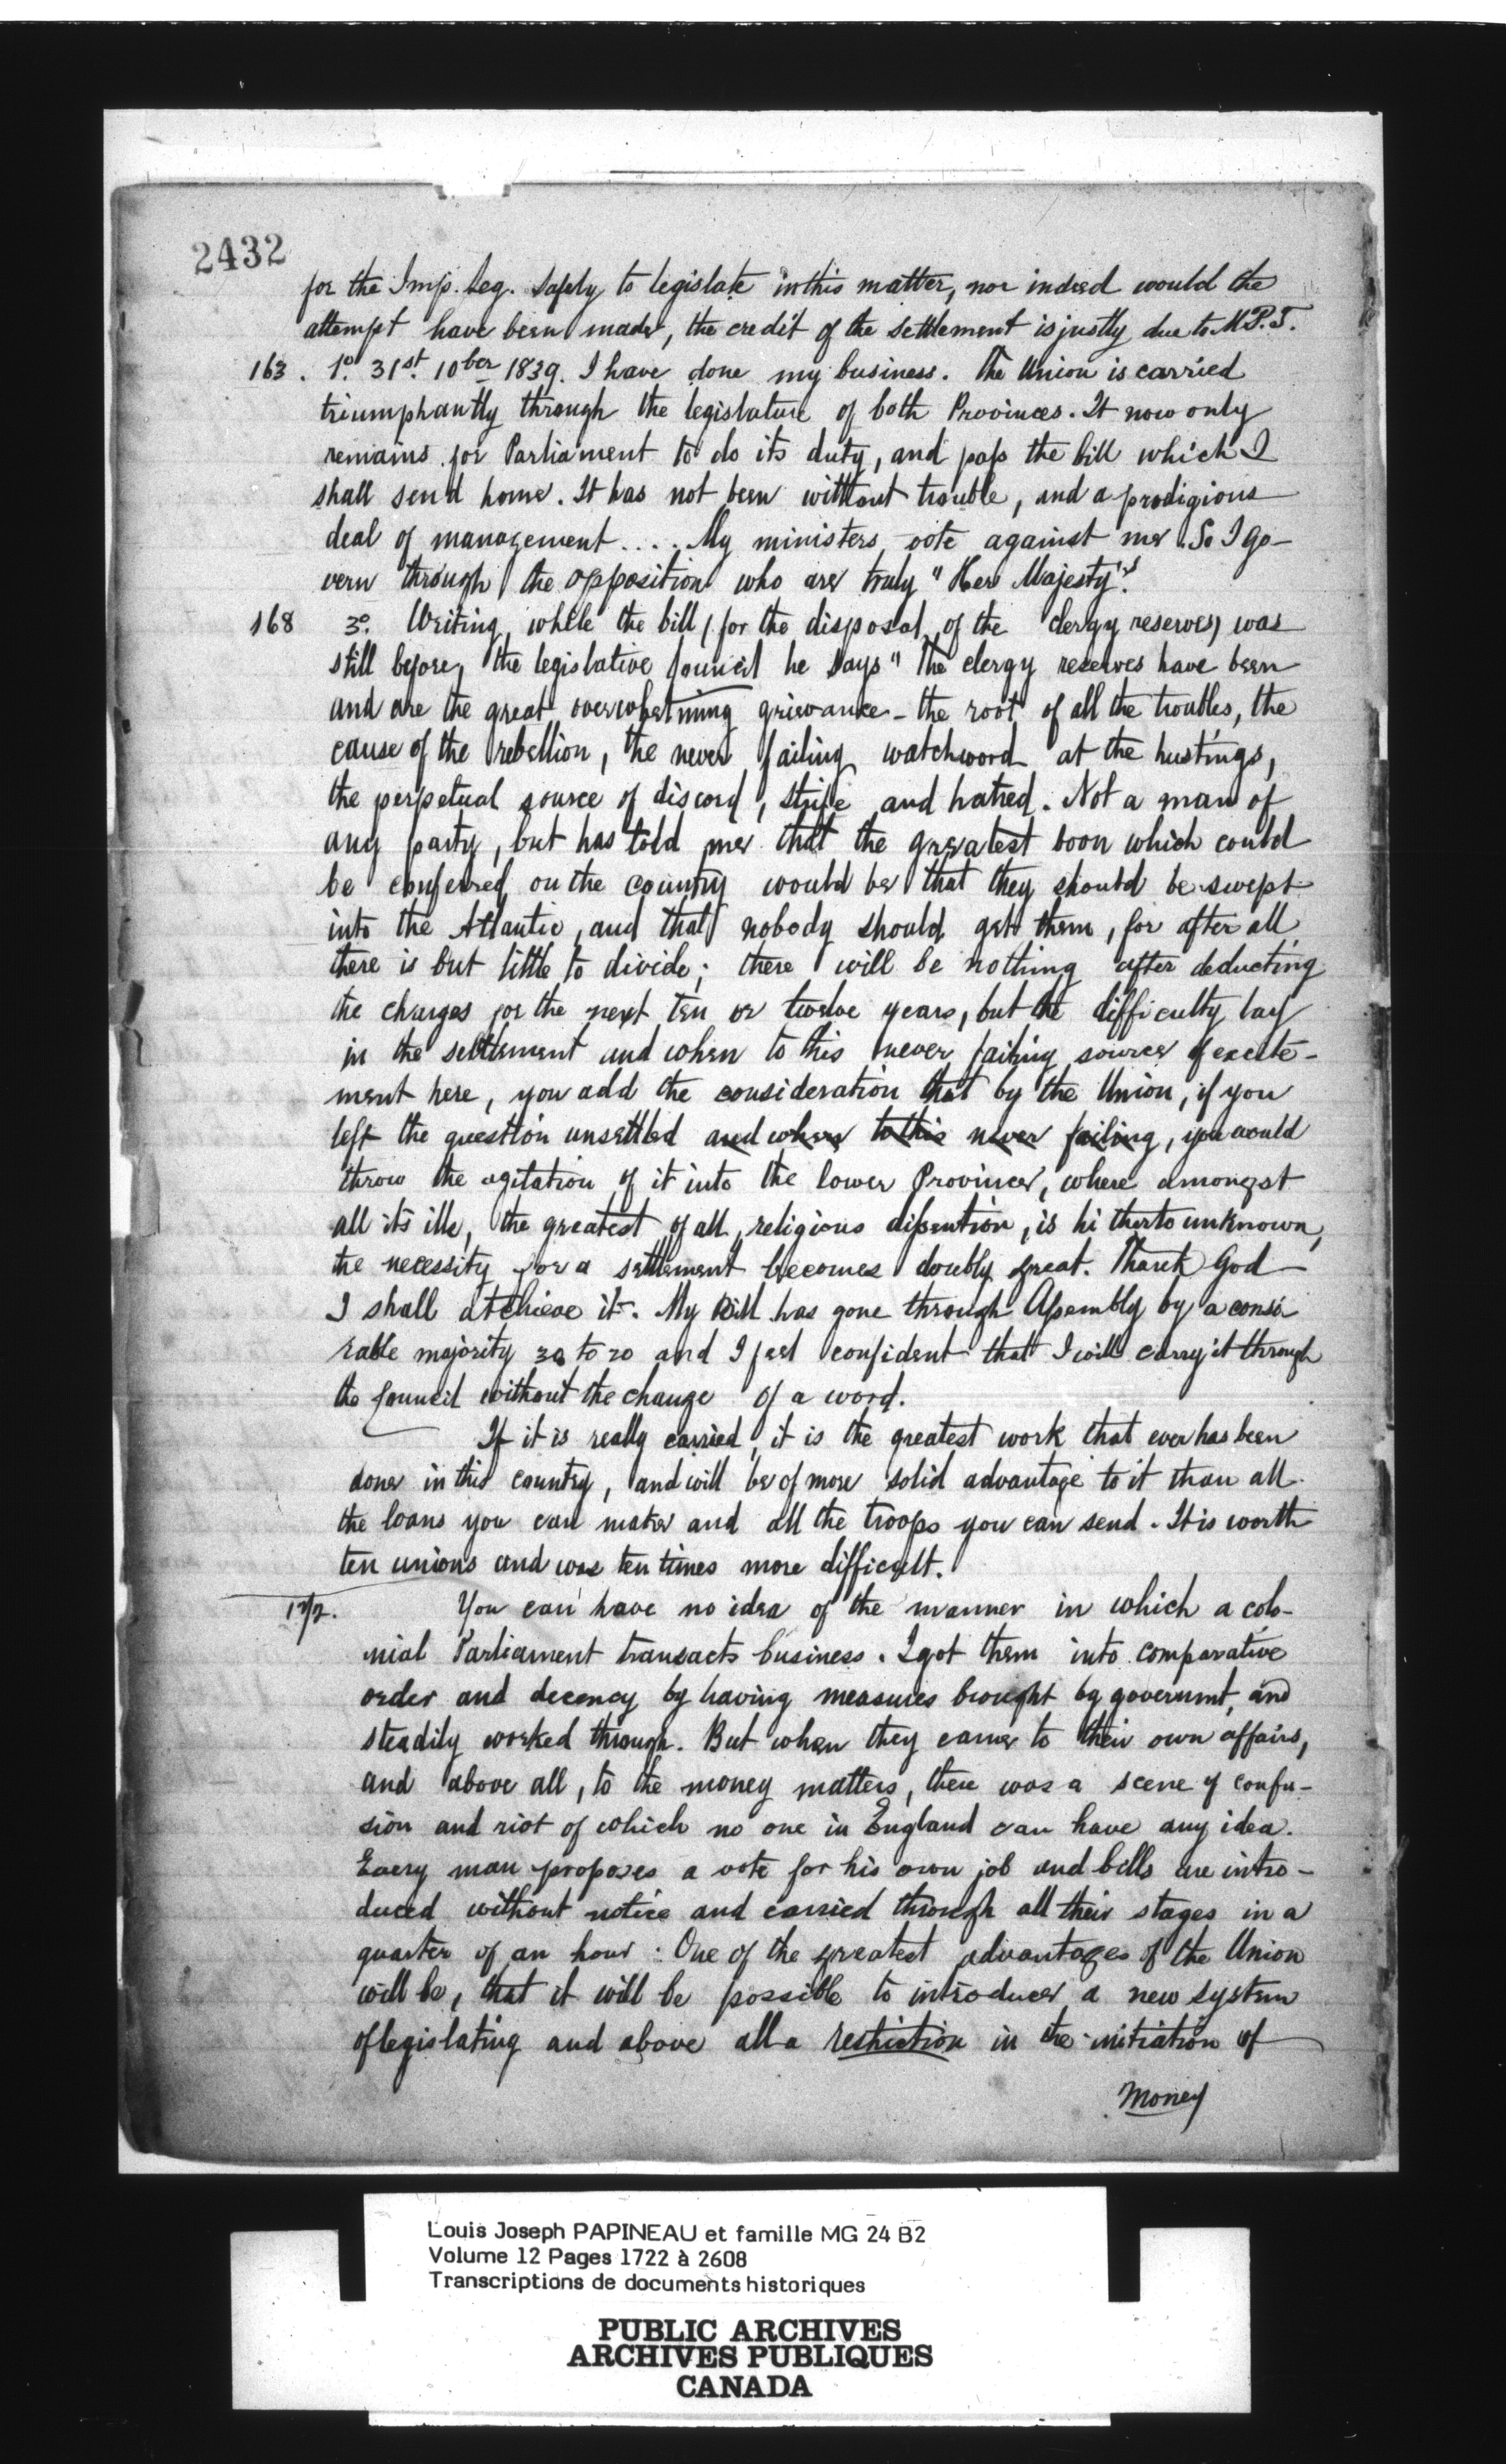 2432
for the Imp. Leg. safely to legislate in this matter, nor indeed would the
attempt have been made, the credit of the settlement is justly due to M.P.T.
163. 1º. 31st. 10ber 1839. I have done my business. The Union is carried
triumphantly through the legislature of both Provinces. It now only
remains for Parliament to do its duty, and pass the bill which I
shall send home. It has not been without trouble, and a prodigious
deal of management.... My ministers vote against me. So I go-
vern through the opposition who are truly "Her Majesty's"
168 3º. Writing, while the bill (for the disposal of the clergy reserves) was
still before, the legislative Council he says "The clergy reserves have been
and are the great overwhelming grievance - the root of all the troubles, the
cause of the rebellion, the never failing watchword at the hustings,
the perpetual source of discord, strife and hatred. Not a man of
any party, but has told me that the greatest boon which could
be conferred on the country would be that they should be swept
into the Atlantic, and that nobody should get them, for after all
there is but little to divide; there will be nothing after deducting
the charges for the next ten or twelve years, but the difficulty lay
in the settlement and when to this never failing source of excite-
ment here, you add the consideration that by the Union, if you
left the question unsettled and when to this never failing, you would
throw the agitation of it into the lower Province, where amongst
all its ills, the greatest of all, religious dissention, is hi therto unknown,
the necessity for a settlement becomes doubly great. Thank God
I shall atchieve it. My Bill has gone through Assembly by a consi
rable majority 30 to 20 and I feel confident that I will carry it through
the Council without the change of a word.
If it is really carried, it is the greatest work that ever has been
done in this country, and will be of more solid advantage to it than all
the loans you can make and all the troops you can send. It is worth
ten unions and was ten times more difficult.
172. You can have no idea of the manner in which a colo-
nial Parliament transacts business. I got them into comparative
order and decency by having measures brought by governmt, and
steadily worked through. But when they came to their own affairs,
and above all, to the money matters, there was a scene of confu-
sion and riot of which no one in England can have any idea.
Every man proposes a vote for his own job and bills are intro-
duced without notice and carried through all their stages in a
quarter of an hour: One of the greatest advantages of the Union
will be, that it will be possible to introduce a new system
of legislating and above all a restriction in the initiation of
Money
Louis Joseph PAPINEAU et famille MG 24 B2
Volume 12 Pages 1722 à 2608
Transcriptions de documents historiques
PUBLIC ARCHIVES
ARCHIVES PUBLIQUES
CANADA